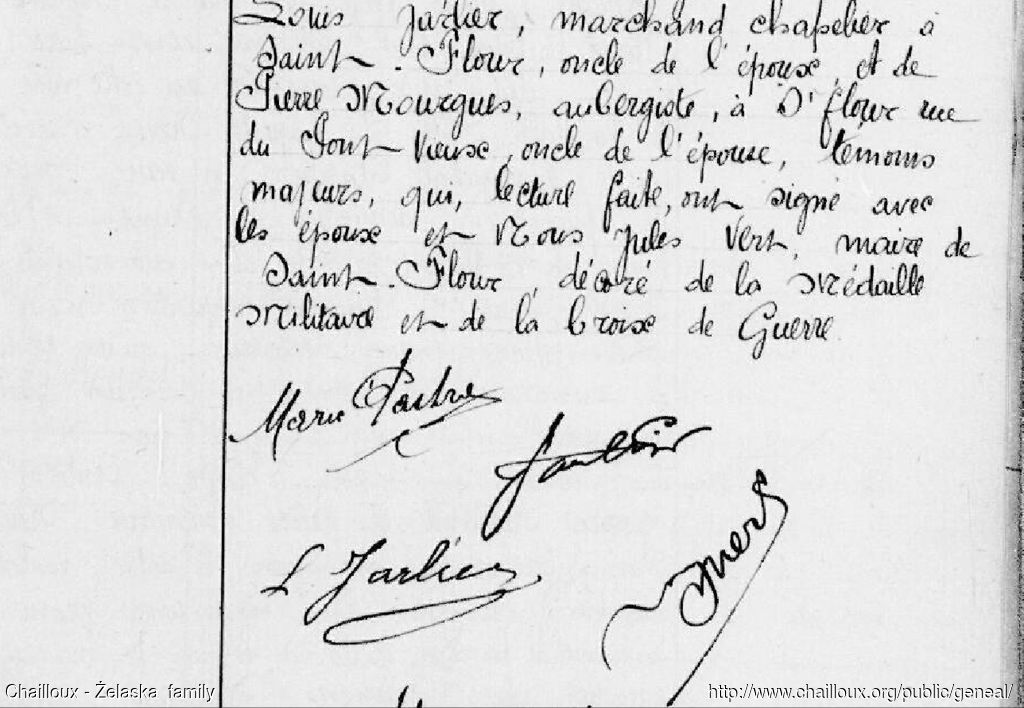 Louis Jarlier, marchand chapelier à
Saint-Flour, oncle de l'épouse, et de
Pierre Mourgues, aubergiste, à St flour rue
du Pont Vieux, oncle de l'épouse, témoins
majeurs, qui, lecture faite, ont signé avec
les époux et Nous Jules Vert, maire de
Saint-Flour, décoré de la Médaille
Militaire et de la Croix de Guerre
Marie Pastre
L Jarlier
JVert
Chailloux - Żelaska family
http://www.chailloux.org/public/geneal/